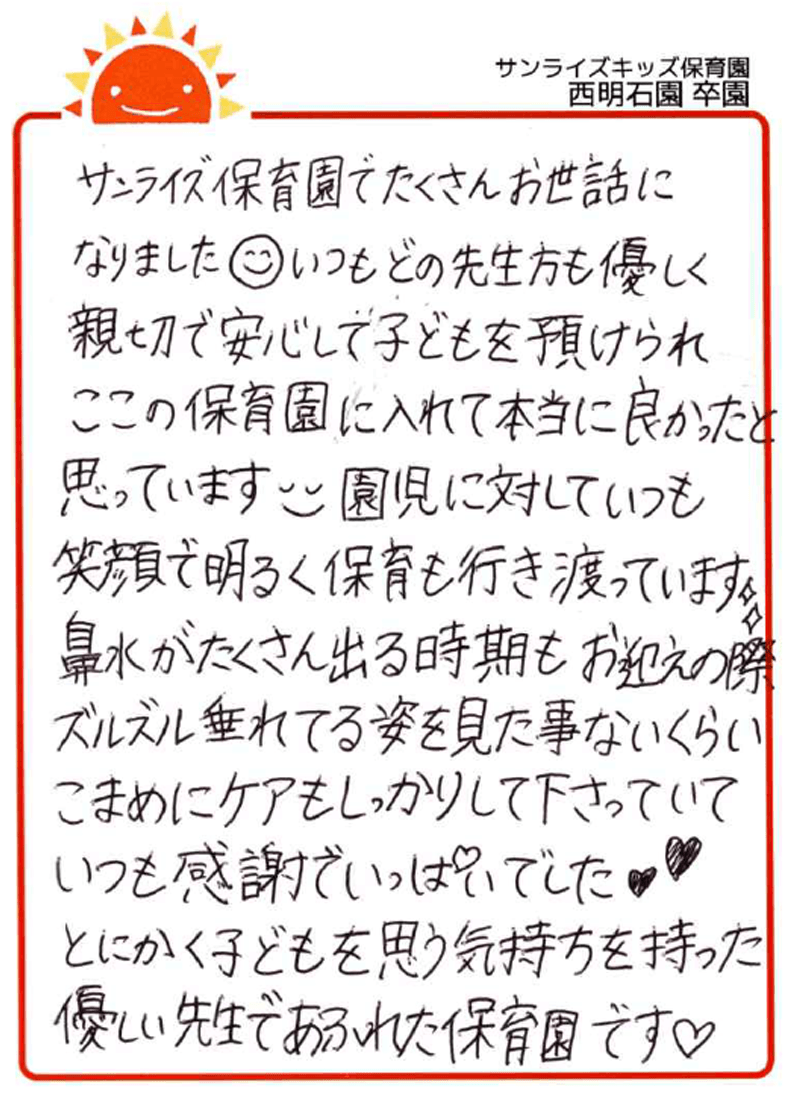 サンライズキッズ保育園
西明石園 卒園
サンライズ保育園でたくさんお世話に
なりました😊いつもどの先生方も優しく
親切で安心して子どもを預けられ
ここの保育園に入れて本当に良かったと
思っています 園児に対していつも
笑顔で明るく保育も行き渡っています
鼻水がたくさん出る時期もお迎えの際
ズルズル垂れてる姿を見た事ないくらい
こまめにケアもしっかりして下さっていて
いつも感謝でいっぱいでした♥♥
とにかく子どもを思う気持ちを持った
優しい先生であふれた保育園です♡